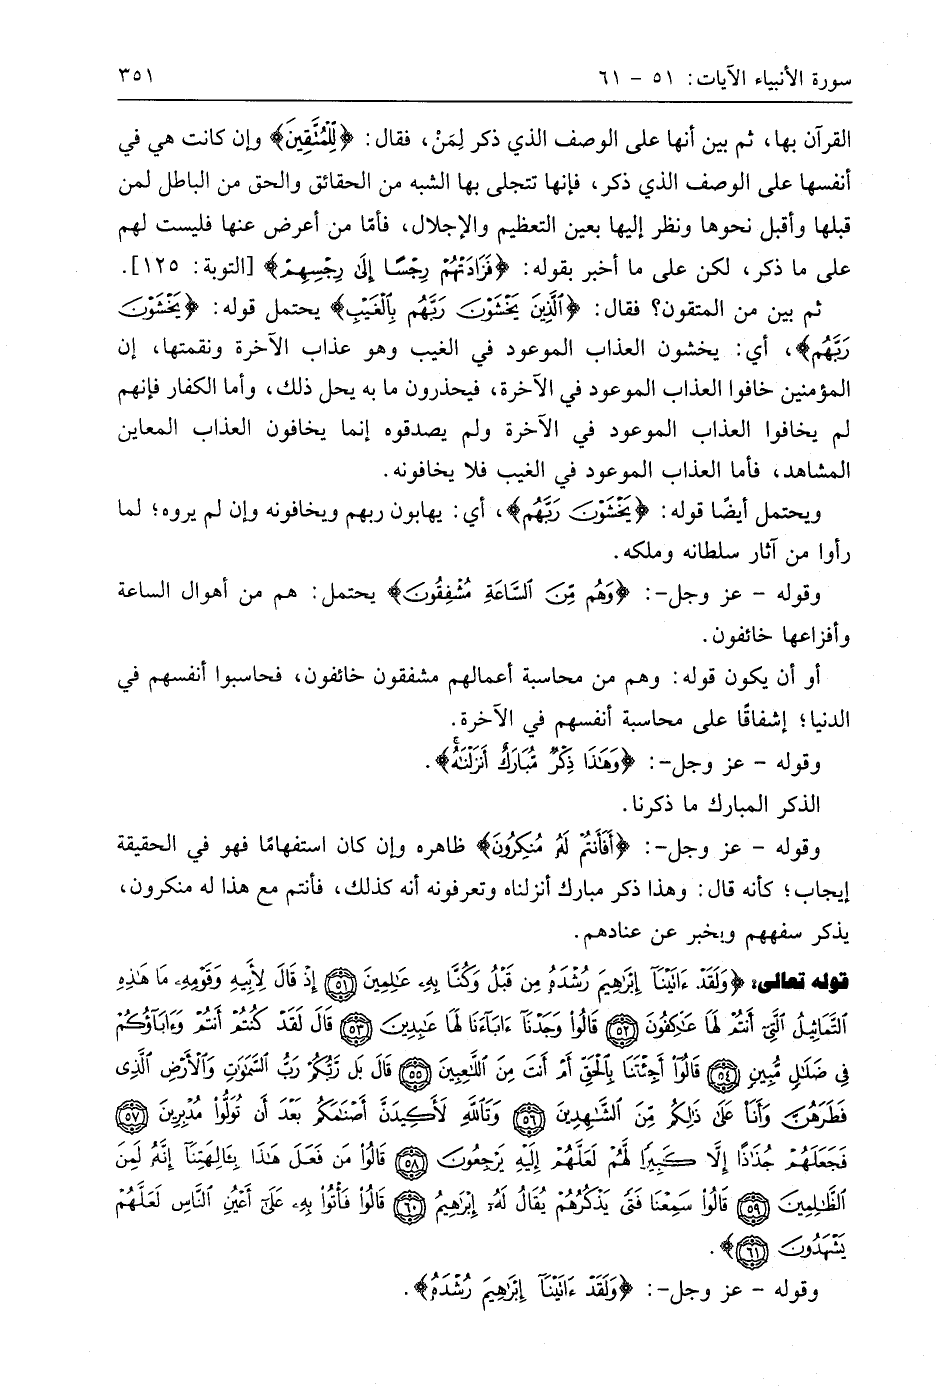 سورة الأنبياء الآيات: ٥١ - ٦١ ٣٥١
القرآن بها، ثم بين أنها على الوصف الذي ذكر لِمَنْ، فقال: ﴿لِّلْمُتَّقِينَ﴾ وإن كانت هي في
أنفسها على الوصف الذي ذكر، فإنها تتجلى بها الشبه من الحقائق والحق من الباطل لمن
قبلها وأقبل نحوها ونظر إليها بعين التعظيم والإجلال، فأمّا من أعرض عنها فليست لهم
على ما ذكر، لكن على ما أخبر بقوله: ﴿فَزَادَتْهُمْ رِجْسًا إِلَى رِجْسِهِمْ﴾ [التوبة: ١٢٥].
ثم بين من المتقون؟ فقال: ﴿ٱلَّذِينَ يَخْشَوْنَ رَبَّهُم بِٱلْغَيْبِ﴾ يحتمل قوله: ﴿يَخْشَوْنَ
رَبَّهُم﴾، أي: يخشون العذاب الموعود في الغيب وهو عذاب الآخرة ونقمتها، إن
المؤمنين خافوا العذاب الموعود في الآخرة، فيحذرون ما به يحل ذلك، وأما الكفار فإنهم
لم يخافوا العذاب الموعود في الآخرة ولم يصدقوه إنما يخافون العذاب المعاين
المشاهد، فأما العذاب الموعود في الغيب فلا يخافونه.
ويحتمل أيضًا قوله: ﴿يَخْشَوْنَ رَبَّهُم﴾، أي: يهابون ربهم ويخافونه وإن لم يروه؛ لما
رأوا من آثار سلطانه وملكه.
وقوله - عز وجل-: ﴿وَهُم مِّنَ ٱلسَّاعَةِ مُشْفِقُونَ﴾ يحتمل: هم من أهوال الساعة
وأفزاعها خائفون.
أو أن يكون قوله: وهم من محاسبة أعمالهم مشفقون خائفون، فحاسبوا أنفسهم في
الدنيا؛ إشفاقًا على محاسبة أنفسهم في الآخرة.
وقوله - عز وجل-: ﴿وَهَٰذَا ذِكْرٌ مُّبَارَكٌ أَنزَلْنَٰهُ﴾.
الذكر المبارك ما ذكرنا.
وقوله - عز وجل-: ﴿أَفَأَنتُمْ لَهُۥ مُنكِرُونَ﴾ ظاهره وإن كان استفهامًا فهو في الحقيقة
إيجاب؛ كأنه قال: وهذا ذكر مبارك أنزلناه وتعرفونه أنه كذلك، فأنتم مع هذا له منكرون،
يذكر سفههم ويخبر عن عنادهم.
قوله تعالى: ﴿وَلَقَدْ ءَاتَيْنَآ إِبْرَٰهِيمَ رُشْدَهُۥ مِن قَبْلُ وَكُنَّا بِهِۦ عَٰلِمِينَ ٥١ إِذْ قَالَ لِأَبِيهِ وَقَوْمِهِۦ مَا هَٰذِهِ
ٱلتَّمَاثِيلُ ٱلَّتِىٓ أَنتُمْ لَهَا عَٰكِفُونَ ٥٢ قَالُوا۟ وَجَدْنَآ ءَابَآءَنَا لَهَا عَٰبِدِينَ ٥٣ قَالَ لَقَدْ كُنتُمْ أَنتُمْ وَءَابَآؤُكُمْ
فِى ضَلَٰلٍ مُّبِينٍ ٥٤ قَالُوٓا۟ أَجِئْتَنَا بِٱلْحَقِّ أَمْ أَنتَ مِنَ ٱللَّٰعِبِينَ ٥٥ قَالَ بَل رَّبُّكُمْ رَبُّ ٱلسَّمَٰوَٰتِ وَٱلْأَرْضِ ٱلَّذِى
فَطَرَهُنَّ وَأَنَا۠ عَلَىٰ ذَٰلِكُم مِّنَ ٱلشَّٰهِدِينَ ٥٦ وَتَٱللَّهِ لَأَكِيدَنَّ أَصْنَٰمَكُم بَعْدَ أَن تُوَلُّوا۟ مُدْبِرِينَ ٥٧
فَجَعَلَهُمْ جُذَٰذًا إِلَّا كَبِيرًا لَّهُمْ لَعَلَّهُمْ إِلَيْهِ يَرْجِعُونَ ٥٨ قَالُوا۟ مَن فَعَلَ هَٰذَا بِـَٔالِهَتِنَآ إِنَّهُۥ لَمِنَ
ٱلظَّٰلِمِينَ ٥٩ قَالُوا۟ سَمِعْنَا فَتًى يَذْكُرُهُمْ يُقَالُ لَهُۥٓ إِبْرَٰهِيمُ ٦٠ قَالُوا۟ فَأْتُوا۟ بِهِۦ عَلَىٰٓ أَعْيُنِ ٱلنَّاسِ لَعَلَّهُمْ
يَشْهَدُونَ ٦١﴾.
وقوله - عز وجل-: ﴿وَلَقَدْ ءَاتَيْنَآ إِبْرَٰهِيمَ رُشْدَهُۥ﴾.